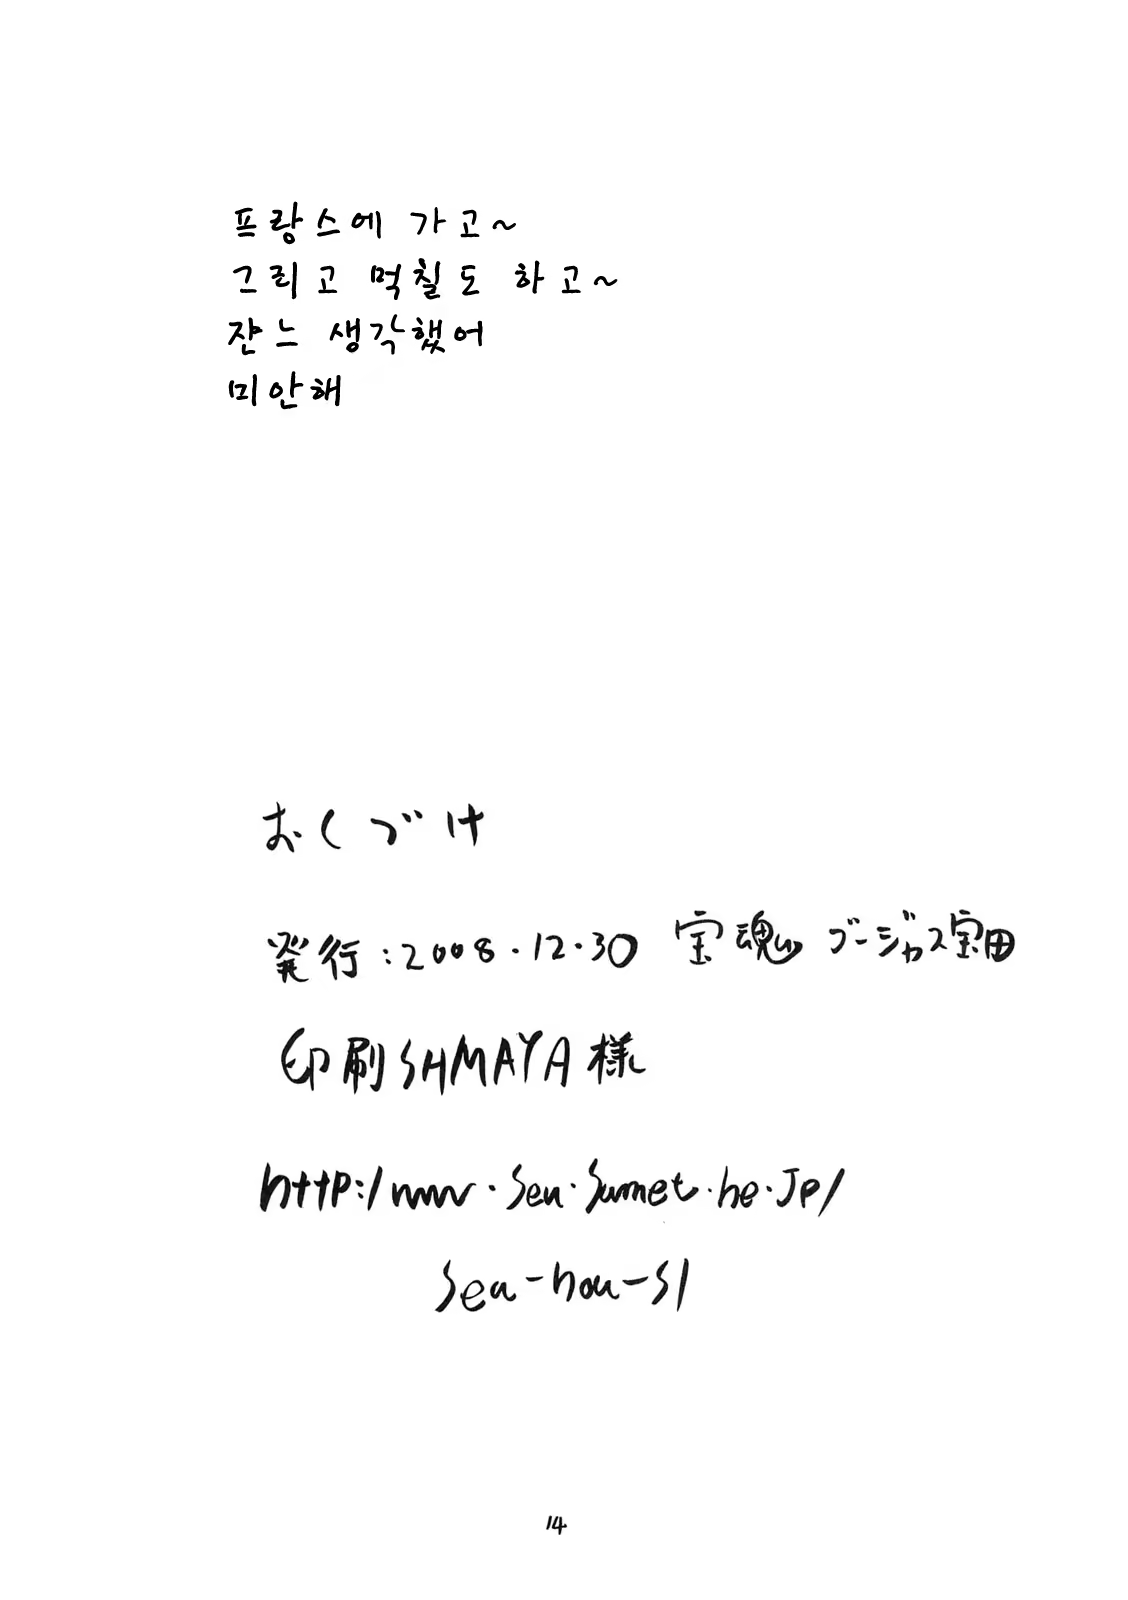 프랑스에 가고~
그리고 먹칠도 하고~
쟌느 생각했어
미안해
おくづけ
発行:2008.12.30 宝魂 ゴージャス宝田
印刷SHMAYA様
http:/www.sen.sumet.he.Jp/
sen-hou-sl
14